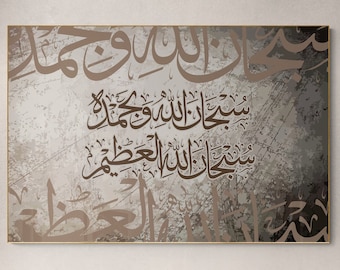 سُبْحَانَ اللهِ وَبِحَمْدِهِ
سُبْحَانَ اللهِ وَبِحَمْدِهِ
سُبْحَانَ اللهِ الْعَظِيمِ
سُبْحَانَ اللهِ الْعَظِيمِ